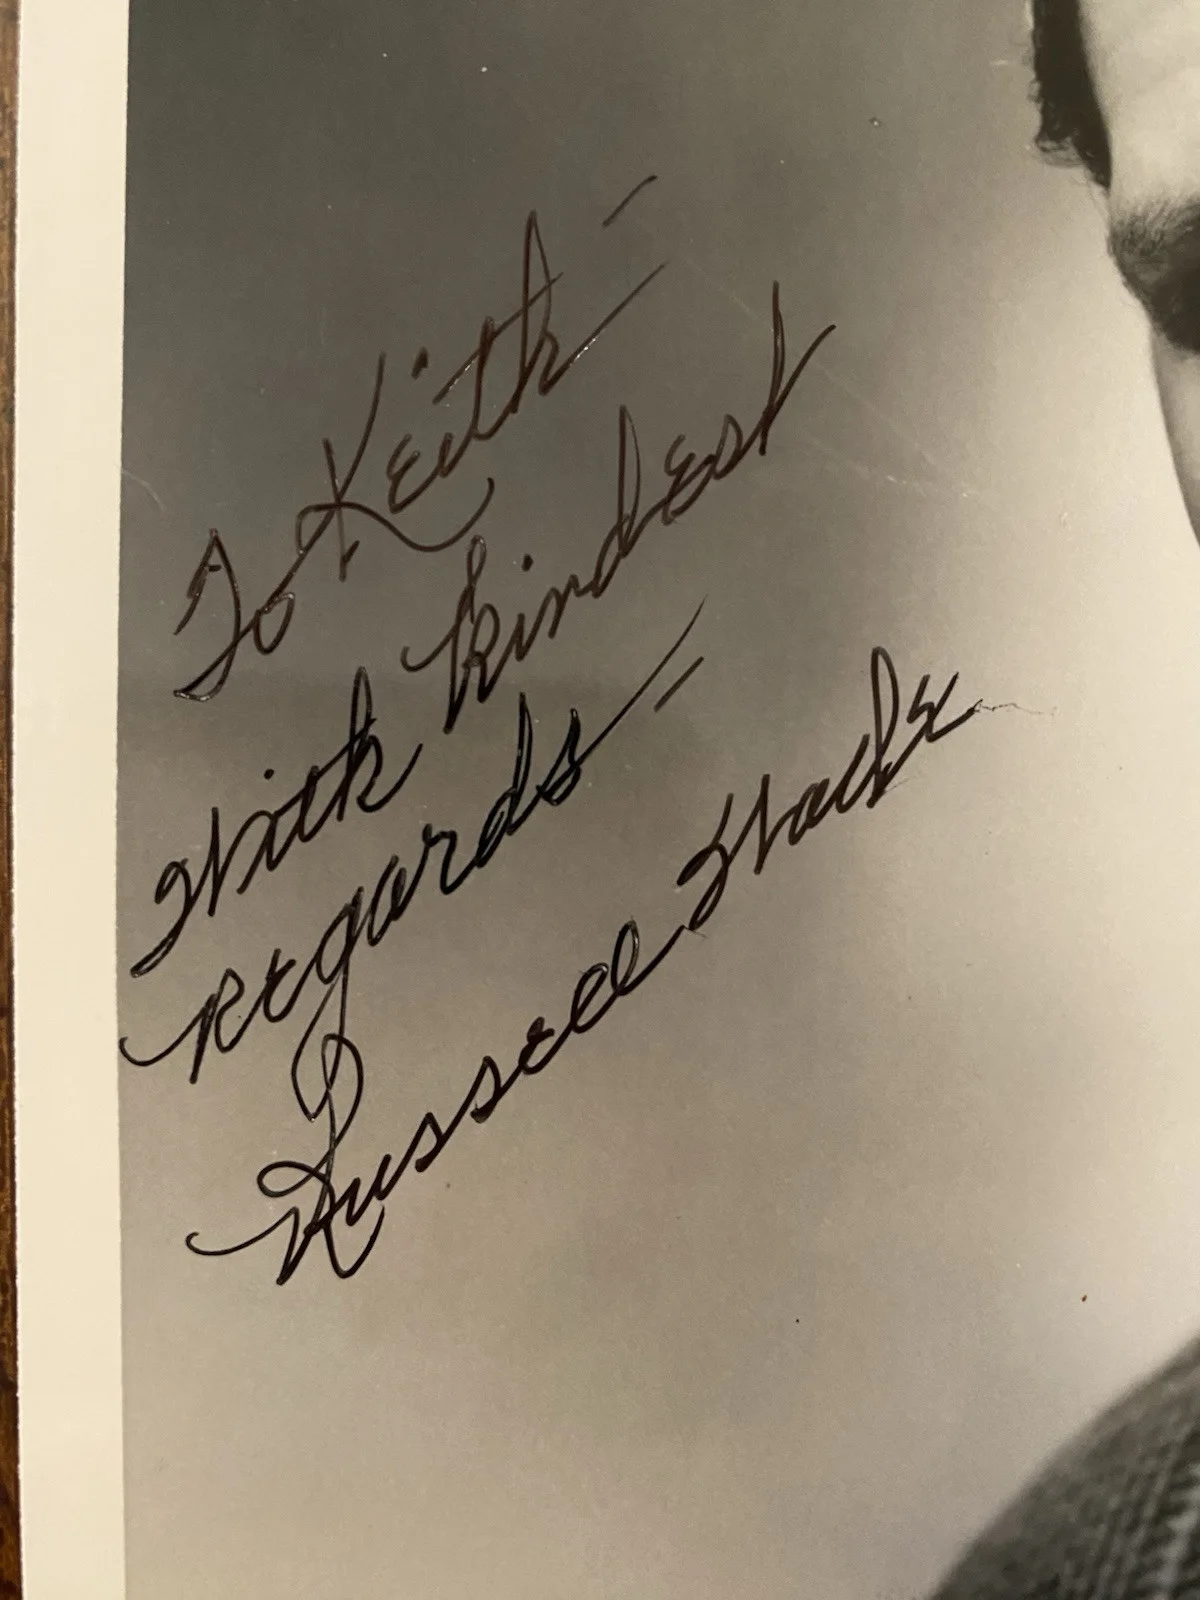 To Keith -
With kindest
regards -
Russell Wade